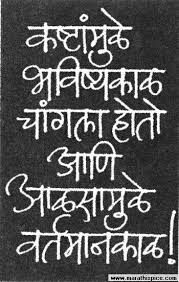 कष्टांमुळे
भविष्यकाळ
चांगला होतो
आणि
आळसामुळे
वर्तमानकाळ!
www.marathispice.com